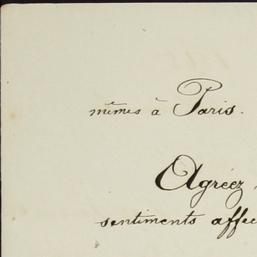 mêmes à Paris.
Agréez,
sentiments affec